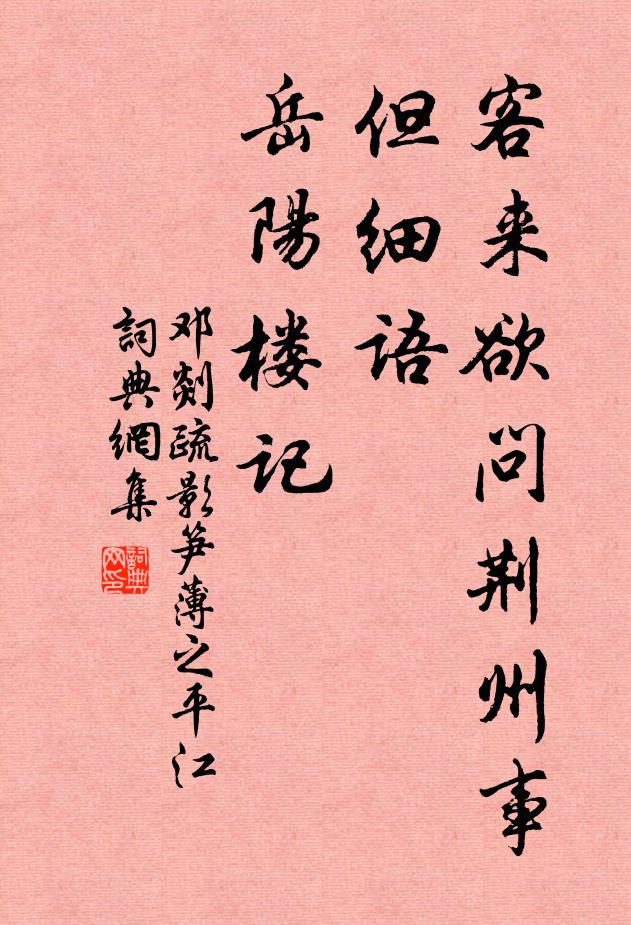 客来欲问荆州事
但细语
岳陽楼记
邓剡疏影笋薄之平江
詞典網集
詞典網印